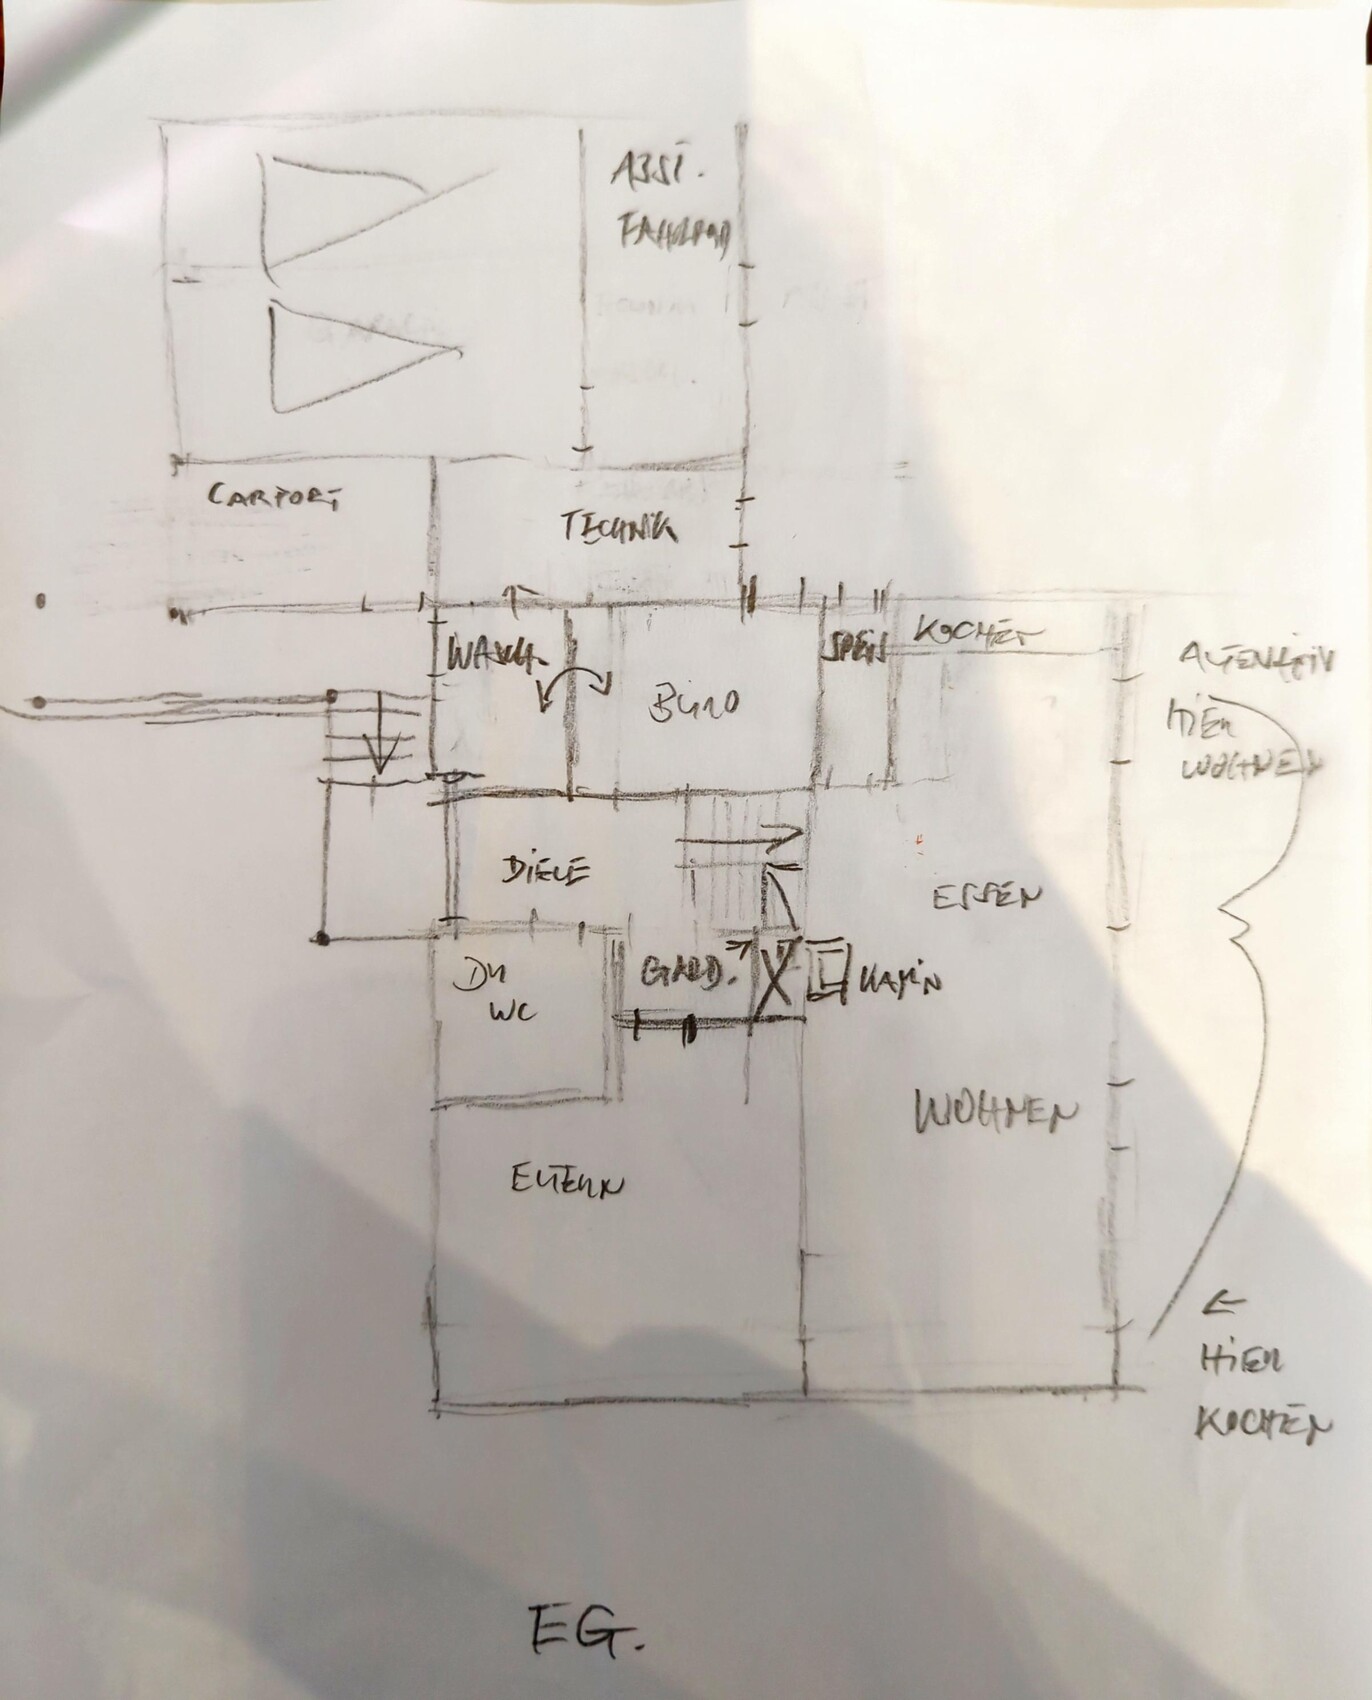 ABST.
FAHRRAD
CARPORT
TECHNIK
WASCH.
BÜRO
SPEIS
KOCHEN
ALTERNATIV
HIER
WOHNEN
DIELE
ESSEN
DU
WC
GARD.
KAMIN
WOHNEN
ELTERN
←
HIER
KOCHEN
EG.